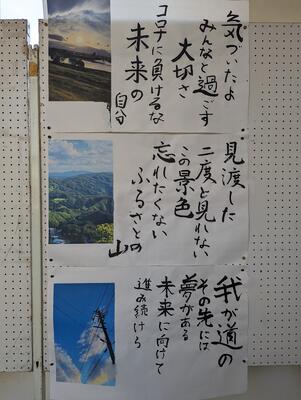 気づいたよ
みんなと過ごす
大切さ
コロナに負けるな
未来の
自分
見渡した
二度と見れない
この景色
忘れたくない
ふるさとの
山
我が道の
その先には
夢がある
未来に向けて
進み続けろ